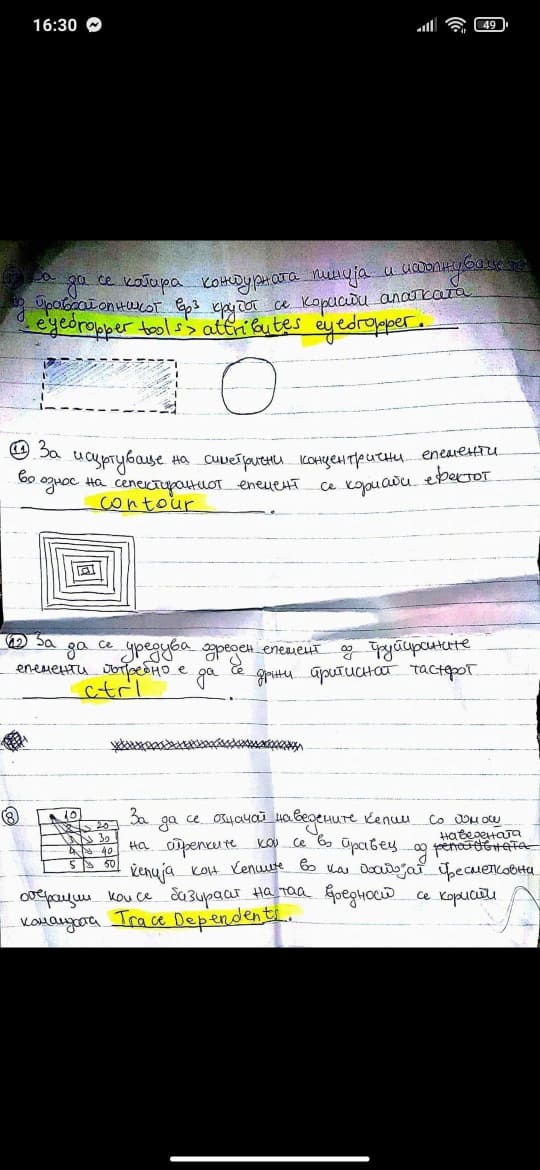 16:30
49
За да се копира контурната линија и исполнувањето
од правоаголникот врз кругот се користи алатката
eyedropper tools > attributes eyedropper.
11 За исцртување на симетрични концентрични елементи
во однос на селектираниот елемент се користи ефектот
contour.
12 За да се уредува одреден елемент од групираните
елементи потребно е да се држи притиснат тастерот
ctrl.
8
10
20
3 30
4 40
5 50
За да се означат наведените ќелии со помош
на стрелките кои се во правец од наведената
ќелија кон ќелиите во кои постојат пресметковни
операции кои се базираат на таа вредност се користи
командата Trace Dependents.